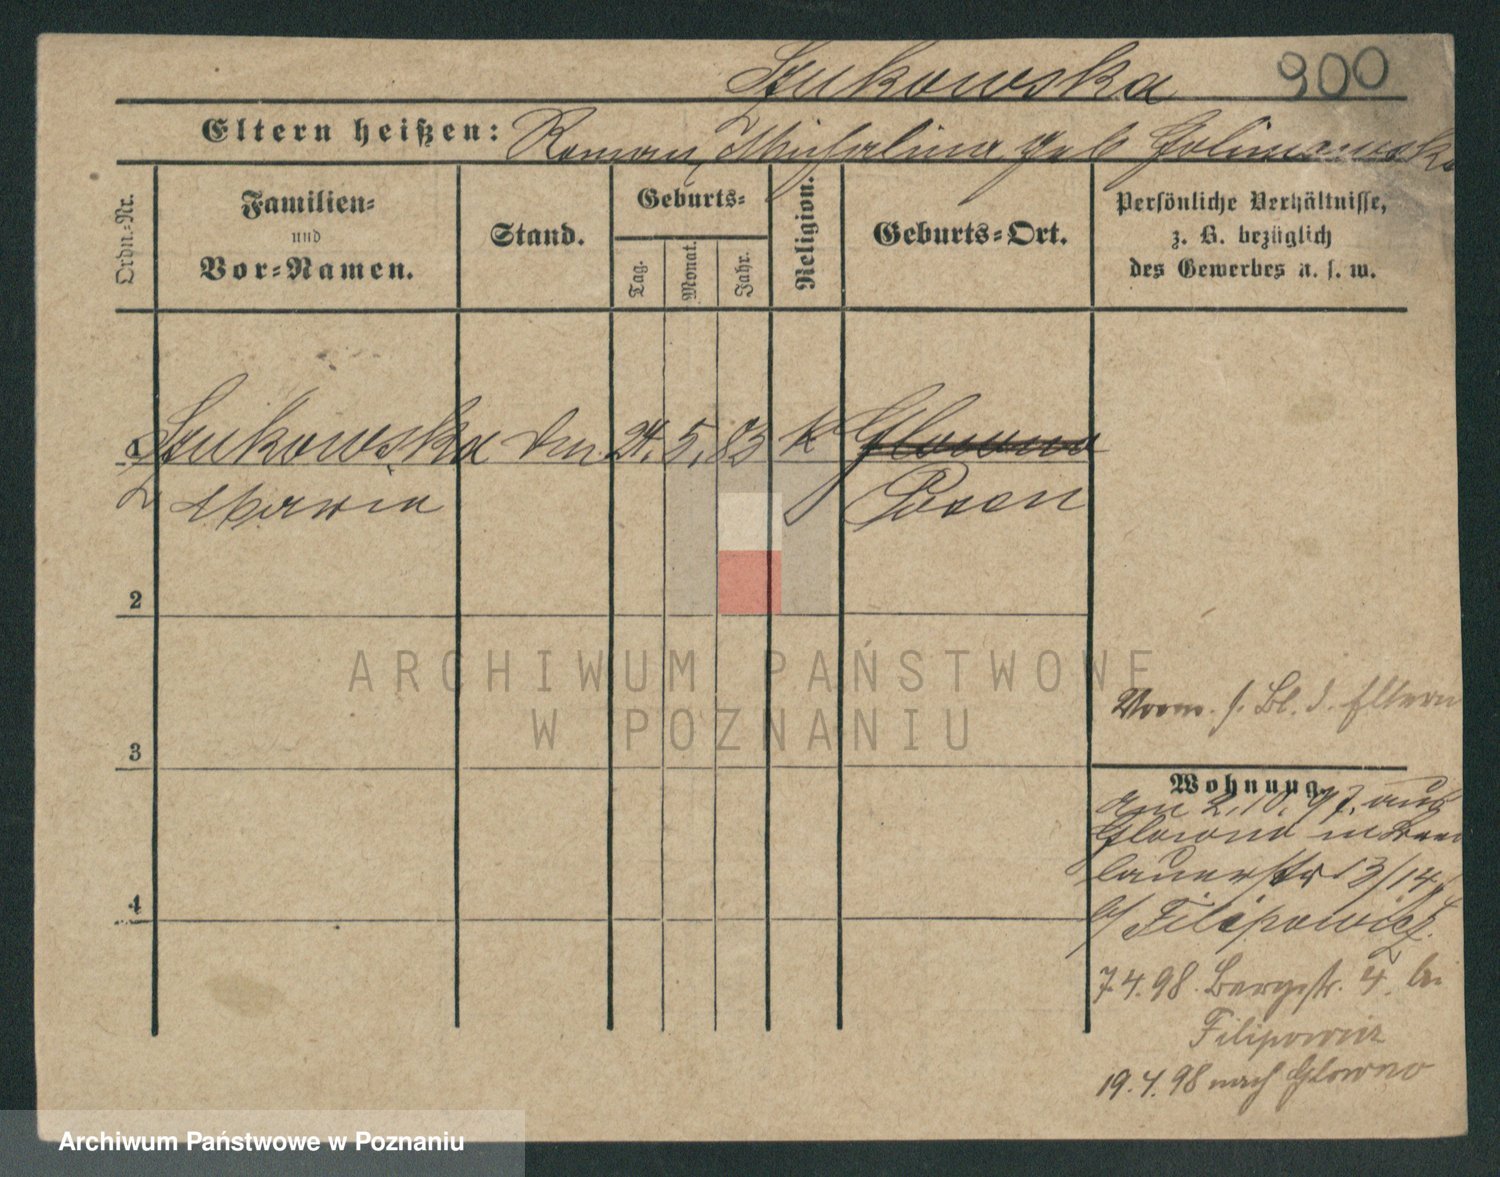 Szukowska 900
Eltern heißen: Roman, Michalina geb
Ordn.-Nr.
Familien-
und
Vor-Namen.
Stand.
Geburts-
Tag.
Monat.
Jahr.
Religion.
Geburts-Ort.
Persönliche Verhältnisse,
z. B. bezüglich
des Gewerbes u. s. w.
1 Szukowska 24. 5. 83 K Glowno
Maria Posen
2
3
4
Vorm. s. Bl. d. Eltern
Wohnung.
am 2.10.97. aus
Glowno in Bres
lauerstr 13/14
b/ Filipowicz.
7.4.98. Bergstr. 4. bei
Filipowicz
19.4.98 nach Glowno
ARCHIWUM PAŃSTWOWE
W POZNANIU
Archiwum Państwowe w Poznaniu